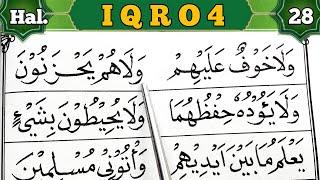 Hal. IQRO 4 28
وَلَاخَوْفٌ عَلَيْهِمْ وَلَاهُمْ يَحْزَنُوْنَ
وَلَا يَؤُدُهٗ حِفْظُهُمَا وَلَا يُحِيْطُوْنَ بِشَيْءٍ
يَعْلَمُ مَا بَيْنَ اَيْدِيْهِمْ وَأْتُوْنِيْ مُسْلِمِيْنَ